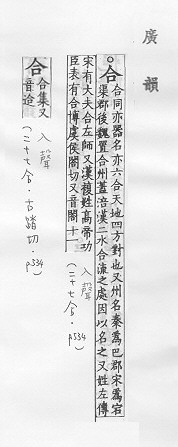 廣韻
合 合同亦器名亦六合天地四方對也又州名秦爲巴郡宋爲宕
渠郡後魏置合州蓋涪漢二水合流之處因以名之又姓左傳
宋有大夫合左師又漢複姓高帝功
臣表有合博虞侯閤切又音閤十一
入聲
(二十七合.p534)
合 合集又
音迨
入聲
(二十七合.古踏切.p534)